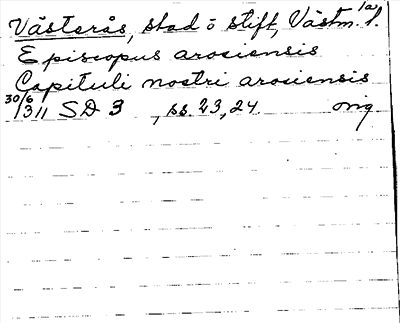 Västerås, stad o stift, Västm. l.
Episcopus arosiensis
Capituli nostri arosiensis
30/6 1311 SD 3, ss. 23, 24. orig